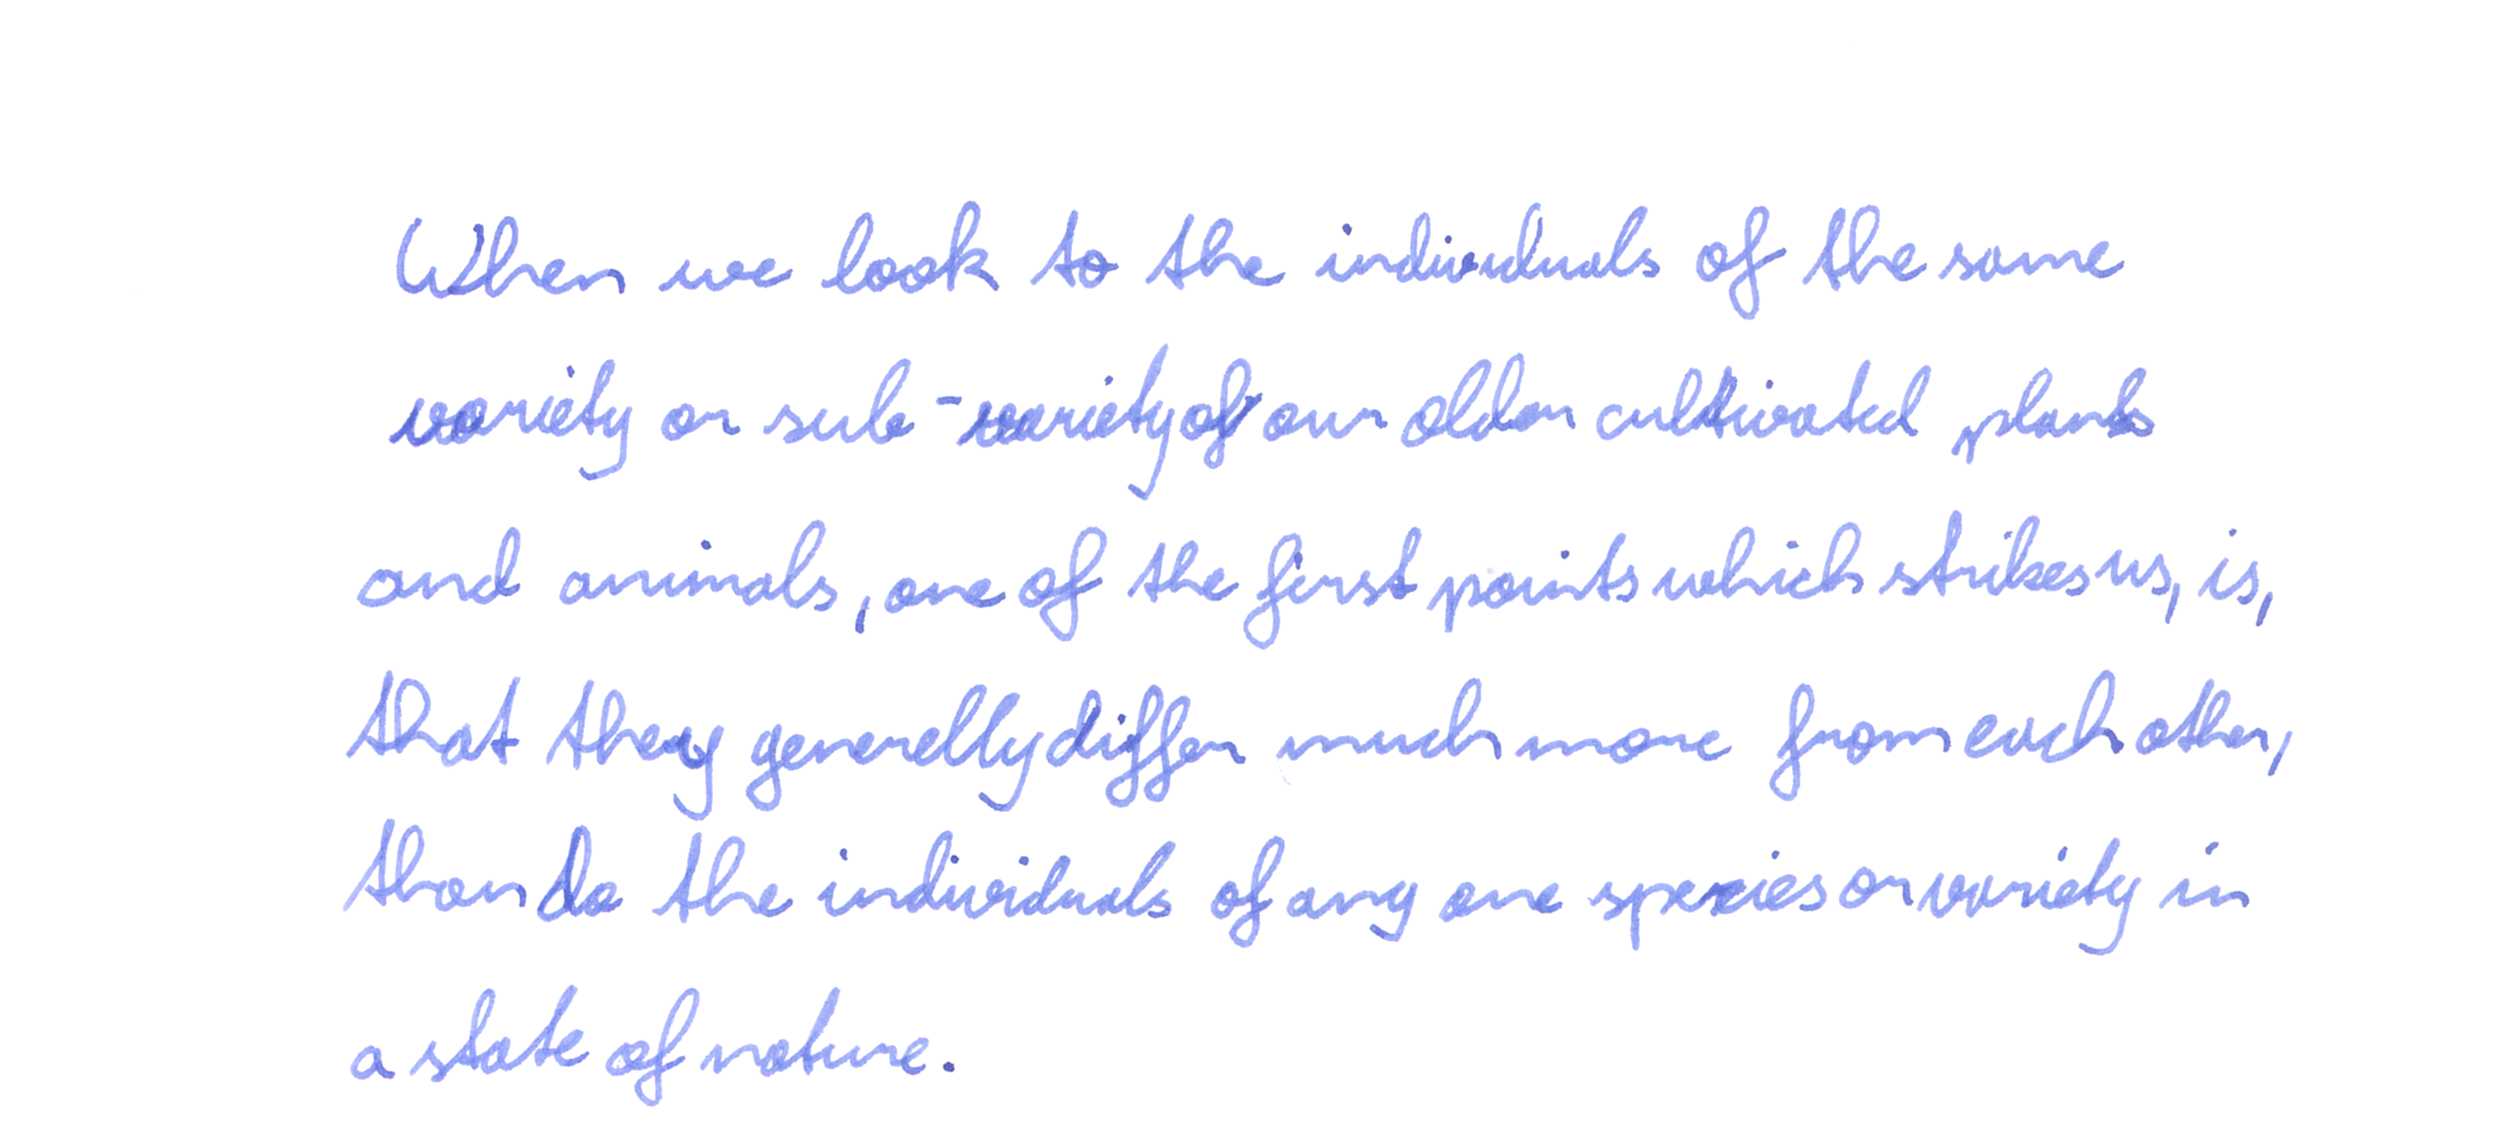 When we look to the individuals of the same
variety or sub-variety of our older cultivated plants
and animals, one of the first points which strikes us, is,
that they generally differ much more from each other,
than do the individuals of any one species or variety in
a state of nature.